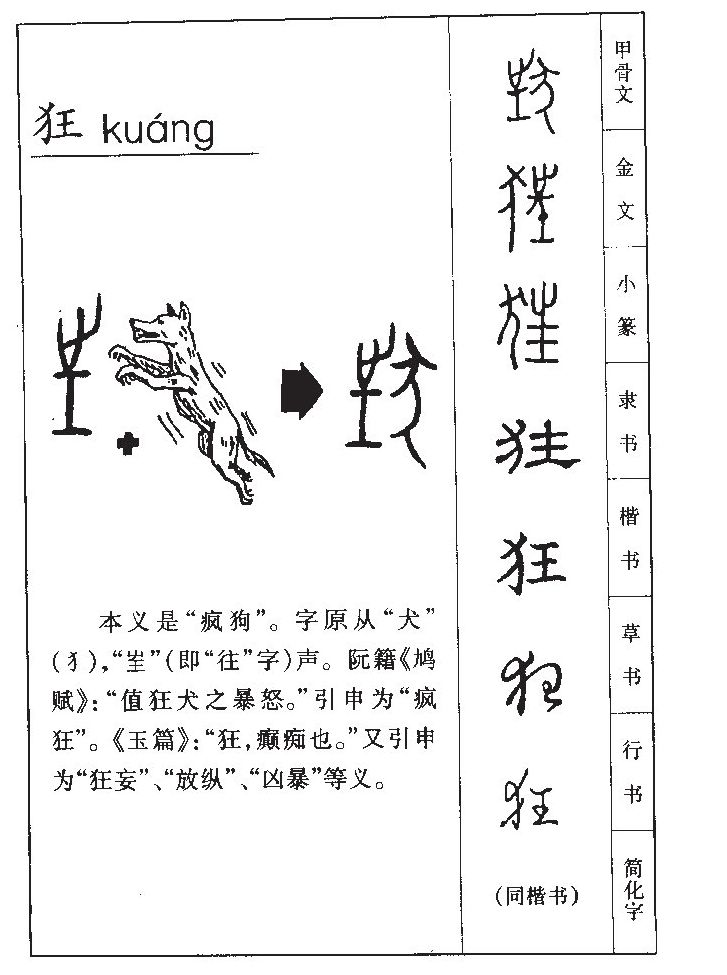 狂 kuáng
本义是“疯狗”。字原从“犬”
(犭),“㞷”(即“往”字)声。阮籍《鸠
赋》:“值狂犬之暴怒。”引申为“疯
狂”。《玉篇》:“狂,癫痴也。”又引申
为“狂妄”、“放纵”、“凶暴”等义。
甲骨文
金文
小篆
隶书
狂
楷书
狂
草书
狂
行书
狂
简化字
(同楷书)